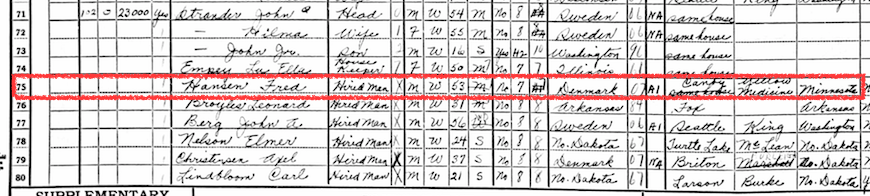 71 112 O 23000 Yes Strander John A Head 0 M W 54 M No 8 8 Sweden 06 NA same house
72 — Hilma Wife 1 F W 55 M No 8 8 Sweden 06 NA same house
73 — John Jr. Son 2 M W 16 S Yes H2 10 Washington 96 same house
74 Empey Lu Ella House Keeper F W 50 M No 7 7 Illinois 61 same house
75 Hansen Fred Hired Man X M W 53 M No 7 Denmark 07 Al Canby Yellow Medicine Minnesota
76 Broyles Leonard Hired Man X M W 31 M No 8 8 Arkansas 84 Fox Arkansas
77 Berg John A. Hired Man X M W 56 No 8 8 Sweden 06 Al Seattle King Washington
78 Nelson Elmer Hired Man X M W 24 S No 8 8 No. Dakota 67 Turtle Lake McLean No. Dakota
79 Christensen Axel Hired Man X M W 37 S No 8 8 Denmark 07 NA Briton Marshall So. Dakota
80 Lindbloom Carl Hired Man X M W 21 S No 8 8 No. Dakota 67 Larson Burke No. Dakota
SUPPLEMENTARY